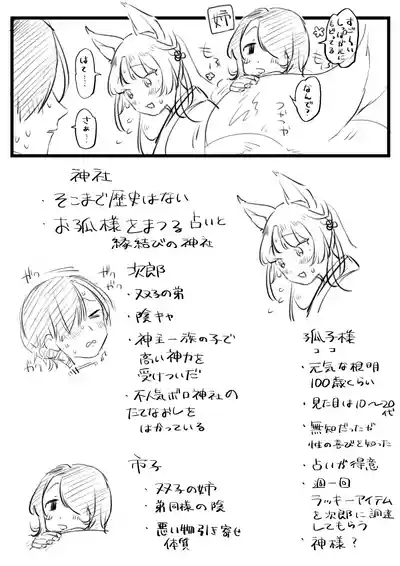 姉
すごーい
しっぽがえに
なんで?
さぁ…
はて…
つやつや
神社
・そこまで歴史はない
・お狐様をまつる占いと
縁結びの神社
ガッ
ガッ
次郎
・双子の弟
・陰キャ
・神主一族の子で
高い神力を
受けついだ
・不人気ボロ神社の
たてなおしを
はかっている
狐子様
ココ
・元気な根明
100歳くらい
・見た目は10〜20代
・無知だったが
性の喜びを知った
・占いが得意
・週一回
ラッキーアイテム
を次郎に調達
してもらう
・神様?
市子
・双子の姉
・弟同様の陰
・悪い物引き寄せ
体質